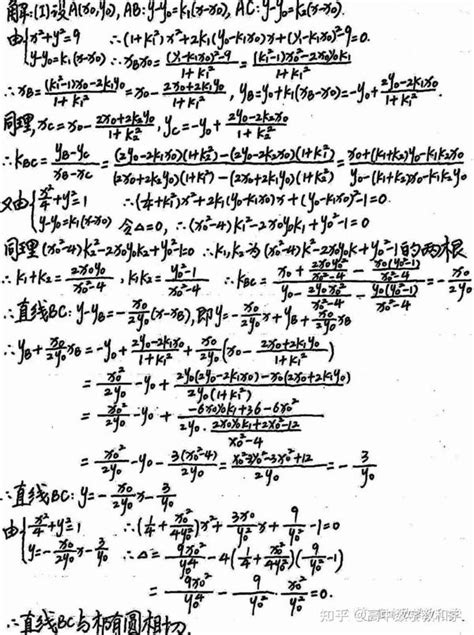 解:(I)设A(x₀,y₀), AB:y-y₀=k₁(x-x₀), AC:y-y₀=k₂(x-x₀).
由{x²+y²=9 y-y₀=k₁(x-x₀) ∴(1+k₁²)x²+2k₁(y₀-k₁x₀)x+(y₀-k₁x₀)²-9=0.
∴x_Bx₀=((y₀-k₁x₀)²-9)/(1+k₁²)=((k₁²-1)x₀²-2x₀y₀k₁)/(1+k₁²)
∴x_B=((k₁²-1)x₀-2k₁y₀)/(1+k₁²)=x₀-(2x₀+2k₁y₀)/(1+k₁²), y_B=y₀+k₁(x_B-x₀)=-y₀+(2y₀-2k₁x₀)/(1+k₁²).
同理, x_C=x₀-(2x₀+2k₂y₀)/(1+k₂²), y_C=-y₀+(2y₀-2k₂x₀)/(1+k₂²)
∴k_BC=(y_B-y_C)/(x_B-x_C)=((2y₀-2k₁x₀)(1+k₂²)-(2y₀-2k₂x₀)(1+k₁²))/((2x₀+2k₂y₀)(1+k₁²)-(2x₀+2k₁y₀)(1+k₂²))=(x₀+(k₁+k₂)y₀-k₁k₂x₀)/(y₀-(k₁+k₂)x₀-k₁k₂y₀)
又由{x²/4+y²=1 y-y₀=k₁(x-x₀) ∴(1/4+k₁²)x²+2k₁(y₀-k₁x₀)x+(y₀-k₁x₀)²-1=0.
令△=0, ∴(x₀²-4)k₁²-2x₀y₀k₁+y₀²-1=0
同理(x₀²-4)k₂²-2x₀y₀k₂+y₀²-1=0 ∴k₁,k₂为(x₀²-4)k²-2x₀y₀k+y₀²-1的两根
∴k₁+k₂=2x₀y₀/(x₀²-4), k₁k₂=(y₀²-1)/(x₀²-4) ∴k_BC=(x₀+2x₀y₀²/(x₀²-4)-x₀(y₀²-1)/(x₀²-4))/(y₀-2y₀x₀²/(x₀²-4)-y₀(y₀²-1)/(x₀²-4))=-x₀/2y₀
∴直线BC: y-y_B=-x₀/2y₀(x-x_B), 即y=-x₀/2y₀x+y_B+x₀/2y₀x_B
∴y_B+x₀/2y₀x_B=-y₀+(2y₀-2k₁x₀)/(1+k₁²)+x₀/2y₀(x₀-(2x₀+2k₁y₀)/(1+k₁²))
=x₀²/2y₀-y₀+(2y₀(2y₀-2k₁x₀)-x₀(2x₀+2k₁y₀))/(2y₀(1+k₁²))
=x₀²/2y₀-y₀+(-6x₀y₀k₁+36-6x₀²)/(2y₀·(2x₀y₀k₁+2x₀²-12)/(x₀²-4))
=x₀²/2y₀-y₀-3(x₀²-4)/2y₀=(x₀²-2y₀²-3x₀²+12)/2y₀=-3/y₀
∴直线BC: y=-x₀/2y₀x-3/y₀
由{x²/4+y²=1 y=-x₀/2y₀x-3/y₀ ∴(1/4+x₀²/4y₀²)x²+3x₀/y₀²x+9/y₀²-1=0
∴△=9x₀²/y₀⁴-4(1/4+x₀²/4y₀²)(9/y₀²-1)
=9x₀²/y₀⁴-9/y₀²·x₀²/y₀²=0.
∴直线BC与椭圆相切.
知乎 @高中数学教和学